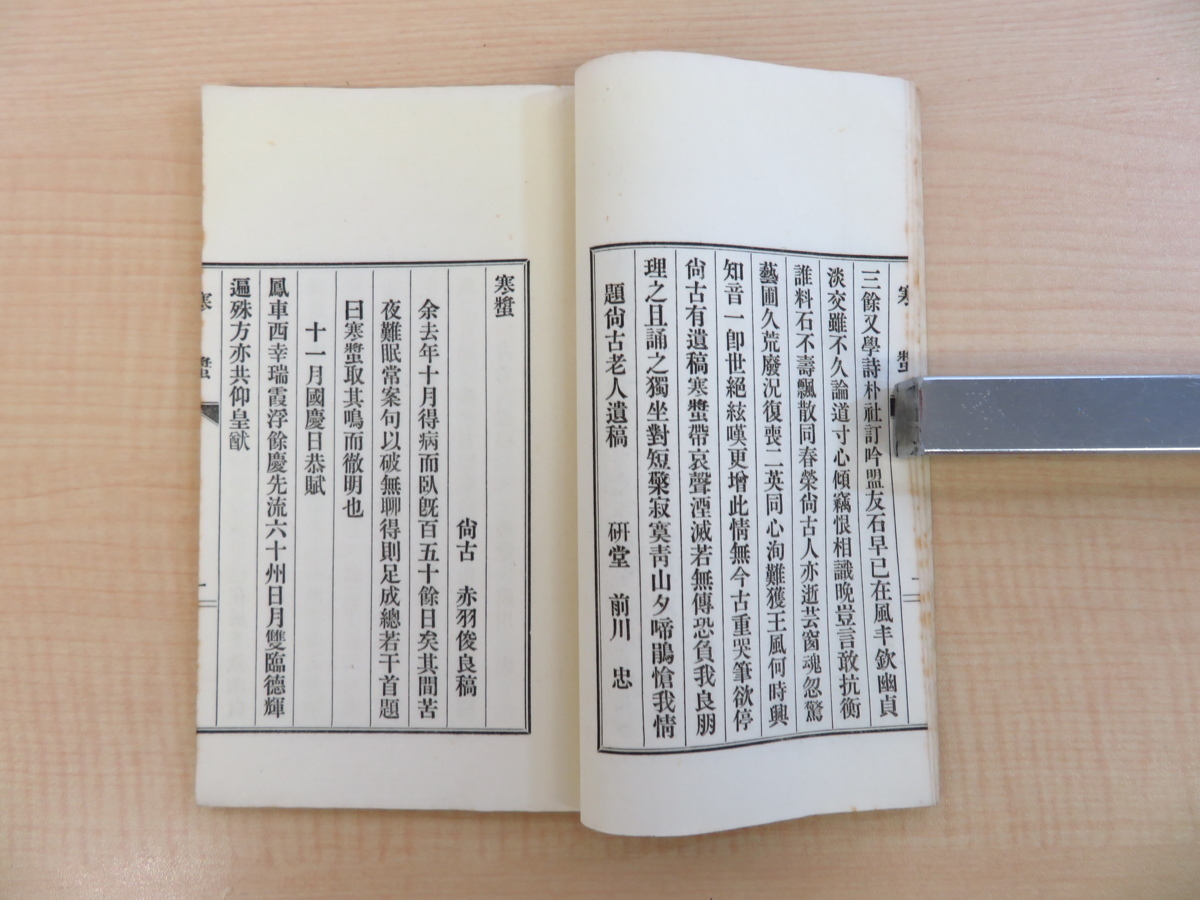 寒蛩
二
三餘又學詩朴社訂吟盟友石早已在風丰欽幽貞
淡交雖不久論道寸心傾竊恨相識晚豈言敢抗衡
誰料石不壽飄散同春榮尙古人亦逝芸窗魂忽驚
藝圃久荒廢況復喪二英同心洵難獲王風何時興
知音一卽世絕絃嘆更增此情無今古重哭筆欲停
尙古有遺稿寒蛩帶哀聲湮滅若無傳恐負我良朋
理之且誦之獨坐對短檠寂寞靑山夕啼鵑愴我情
題尙古老人遺稿 硏堂 前川 忠
寒蛩
尙古 赤羽俊良稿
余去年十月得病而臥旣百五十餘日矣其間苦
夜難眠常案句以破無聊得則足成總若干首題
曰寒蛩取其鳴而徹明也
十一月國慶日恭賦
鳳車西幸瑞霞浮餘慶先流六十州日月雙臨德輝
遍殊方亦共仰皇猷
寒蛩